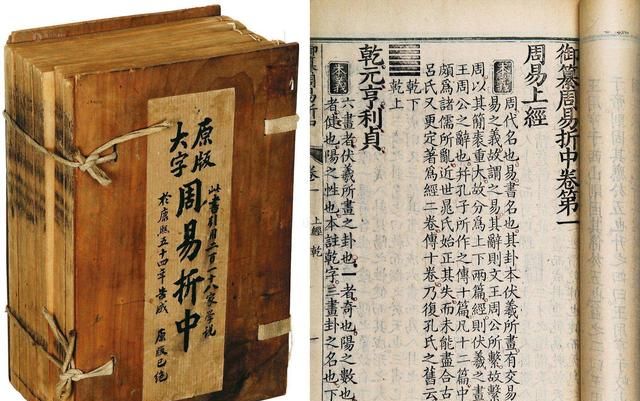 原版
大字
此書引用二百一十八家學說
周易折中
於康熙五十四年告成 原版已絕
御纂周易折中卷第一
周易上經
本義 周代名也易書名也其卦本伏羲所畫有交易
易之義故謂之易其辭則文王周公所繫故繫
周以其簡袠重大故分為上下兩篇經則伏羲之畫
王周公之辭也并孔子所作之傳十篇凡十二篇中
頗為諸儒所亂近世晁氏始正其失而未能盡合古
呂氏又更定著為經二卷傳十卷乃復孔氏之舊云
乾下
乾上
乾元亨利貞
本義 六畫者伏羲所畫之卦也一者奇也陽之數也
者健也陽之性也本註乾字三畫卦之名也下
御纂周易折中 卷一 上經 乾